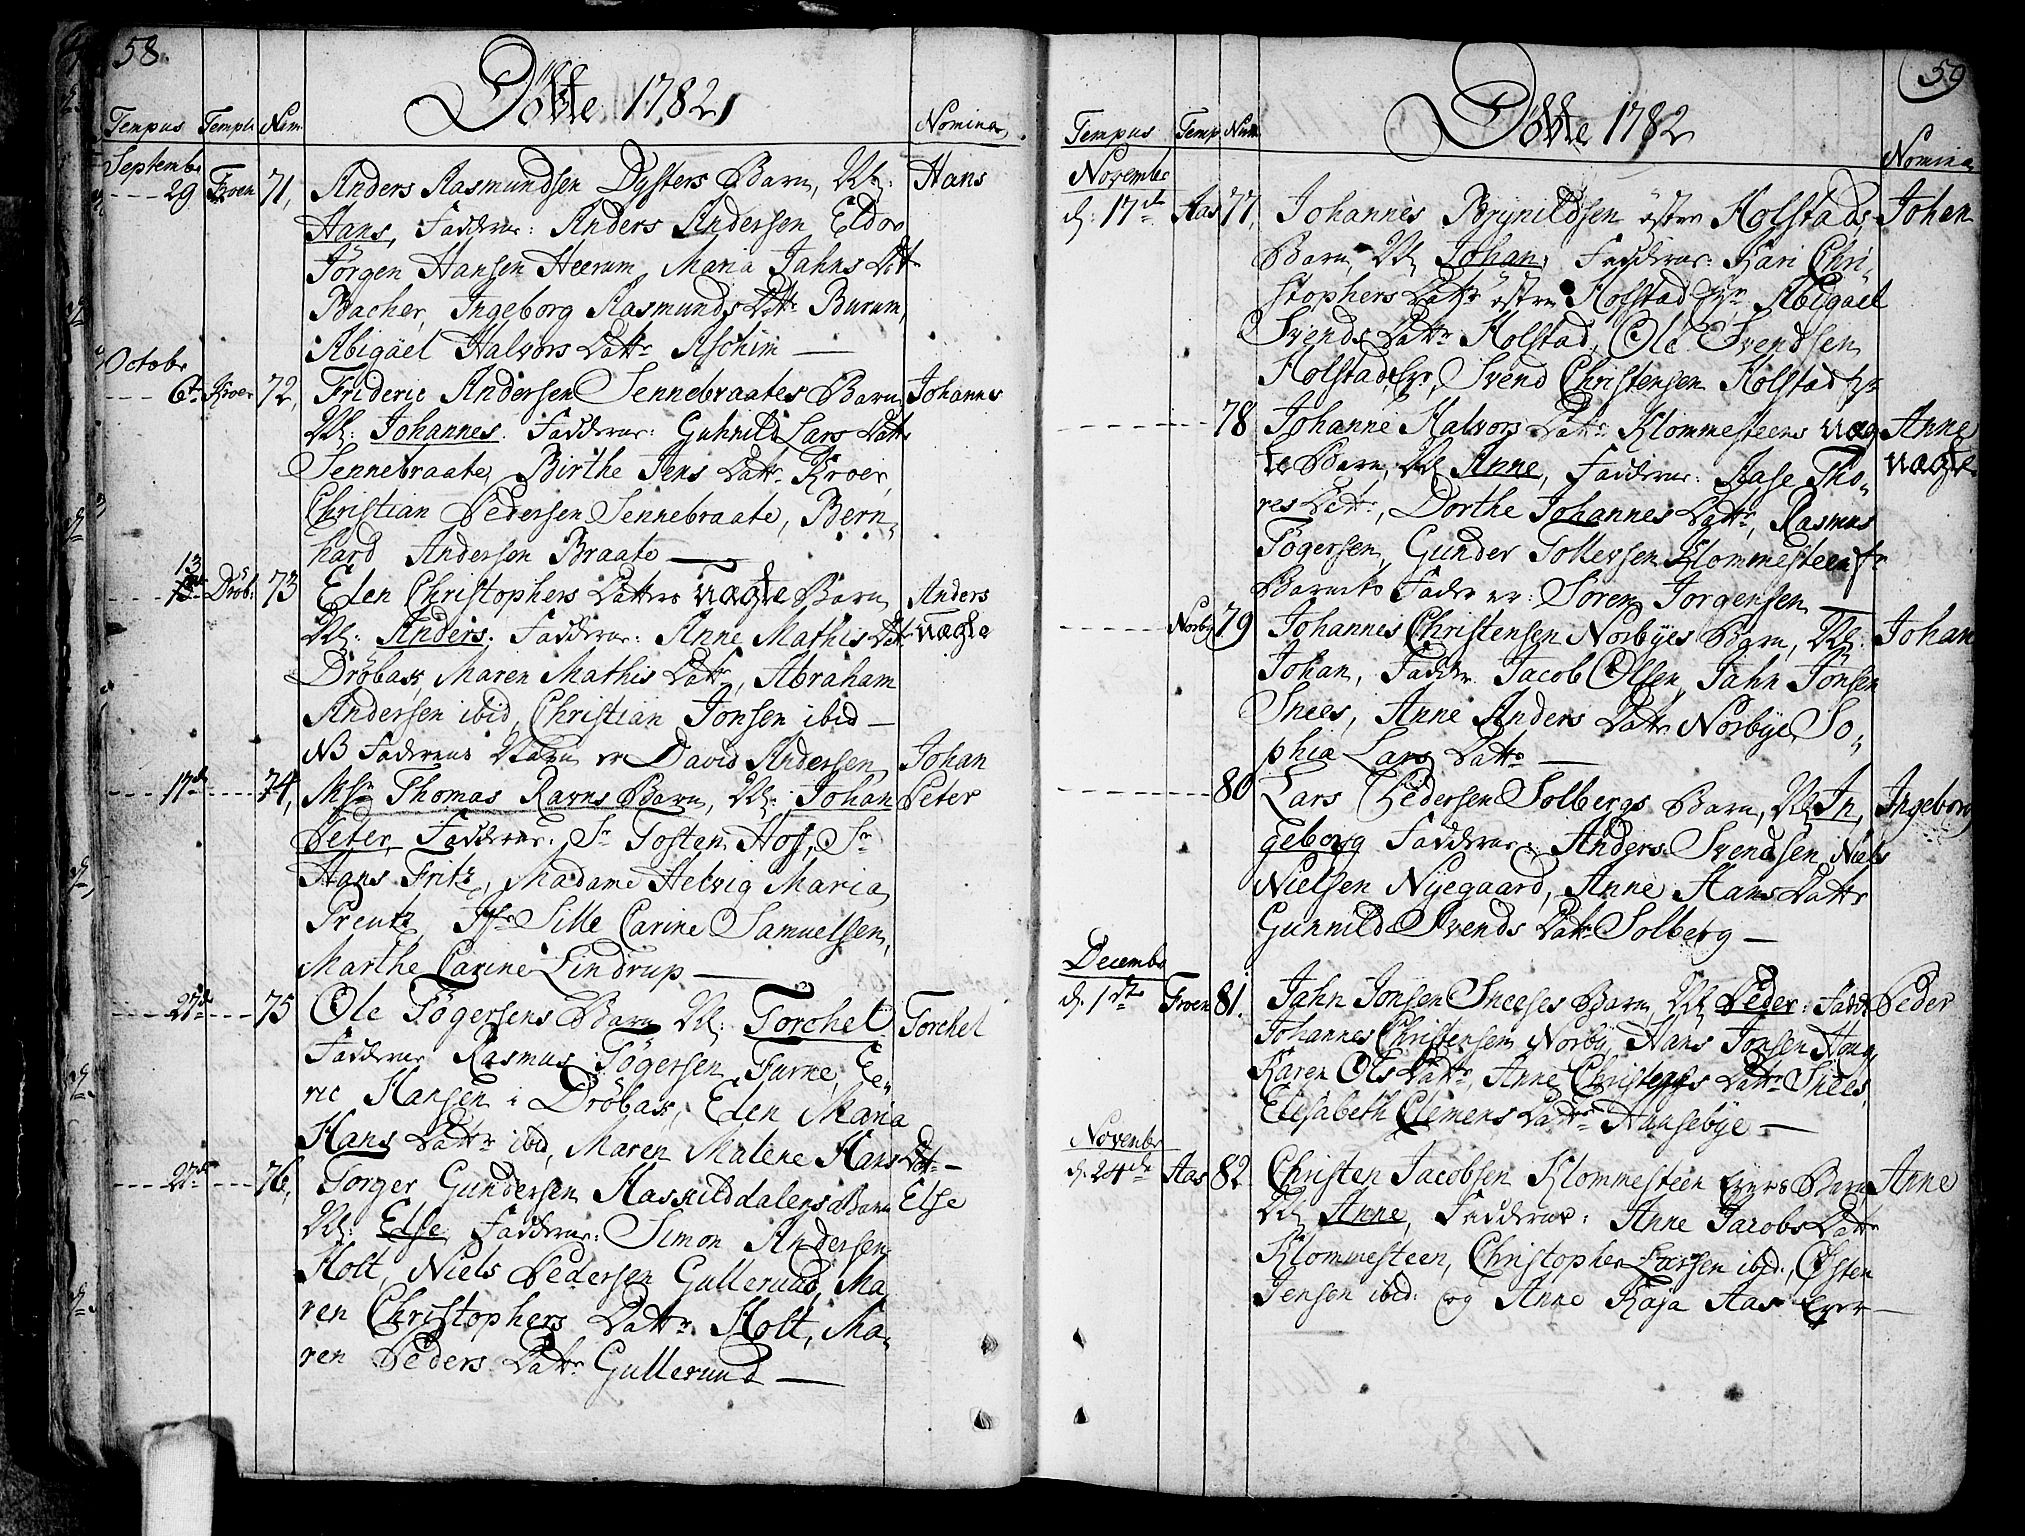 58.
Döbte 1782
Tempus Templ Num. Nomina
Septembr
29 Froen 71, Anders Rasmundsen Dysters Barn, N: Hans
Hans, Faddrer: Anders Andersen Eldor
Jörgen Hansen Heerum, Maria Jahns Dat
Bacher, Ingeborg Rasmunds Datr Burum,
Abigäel Halvors Dattr Aschim —
Octobr
6te Kroer 72, Frideric Andersen Sennebraates Barn Johannes
N: Johannes. Faddrer: Guhnild Lars Dattr
Sennebraate, Birthe Jens Dattr Kroer,
Christian Pedersen Sennebraate, Bern,
hard Andersen Braate —
13 Dröb: 73 Elen Christophers Datters uægte Barn Anders
N: Anders. Faddrer: Anne Mathis Dat uægte
Dröbak, Maren Mathis Dattr, Abraham
Andersen ibid, Christian Jonsen ibid —
NB Faderens Navn er David Andersen Johan
17de 74, Msr Thomas Ravns Barn, N: Johan Peter
Peter, Faddrer: Sr Tosten Hof, Sr
Hans Fritz, Madame Helvig Maria
Preutz, Jfr Sille Carine Samuelsen,
Marthe Carine Lindrup —
27de 75 Ole Tögersens Barn N: Torchel Torchel
Faddrer Rasmus Tögersen Furne, Ee,
ric Hansen i Dröbak, Elen Maria
Hans Dattr ibid, Maren Malene Hans Dat —
27de 76, Torger Gundersen Haskilddalens Barn Else
N: Else, Faddrer: Simon Andersen
Holt, Niels Pedersen Gullerud, Ma,
ren Christophers Dattr Holt, Ma,
ren Peders Dattr Gullerund —
59
Döbte 1782
Tempus Temp Num Nomina
Novembr
d: 17de Aas 77, Johannes Brynildsen östre Holstads Johan
Barn, N Johan, Faddrer: Kari Chri,
stophers Dattr östre Holstad Eyr, Abigäel
Svends Dattr Holstad, Ole Svendsen
Holstad Eyr, Svend Christensen Holstad Er
78 Johanne Halvors Dattr Klommesteens uæg Anne
te Barn, N Anne, Faddrer: Aase Tho, uægte
res Dattr, Dorthe Johannes Dattr, Rasmus
Tögersen, Gunder Tollevsen Klommesteen
Barnets Fader er: Sören Jörgensen —
Norby 79 Johannes Christensen Norbyes Barn, N: Johan
Johan, Faddr. Jacob Olsen, Jahn Jonsen
Snees, Anne Anders Dattr Norbye, So,
phia Lars Dattr —
80 Lars Pedersen Solbergs Barn, N In, Ingeborg
geborg Faddrer: Anders Svendsen, Niels
Nielsen Nyegaard, Anne Hans Dattr
Gunnild Svends Datr Solberg —
Decembr
d. 1ste Froen 81. Jahn Jonsen Sneeses Barn, N Peder: Faddr Peder
Johannes Christensen Norby, Hans Jonsen Houg,
Karen Ols Dattr, Anne Christens Dattr Snees,
Elisabeth Clemens Dattr Hausebye —
Novembr
d. 24de Aas 82. Christen Jacobsen Klommesteen Eyers Barn Anne
N Anne, Faddrer: Anne Jacobs Dattr
Klommesteen, Christopher Larsen ibid:, Östen
Jensen ibid: og Anne Kaja Aas Eyer —